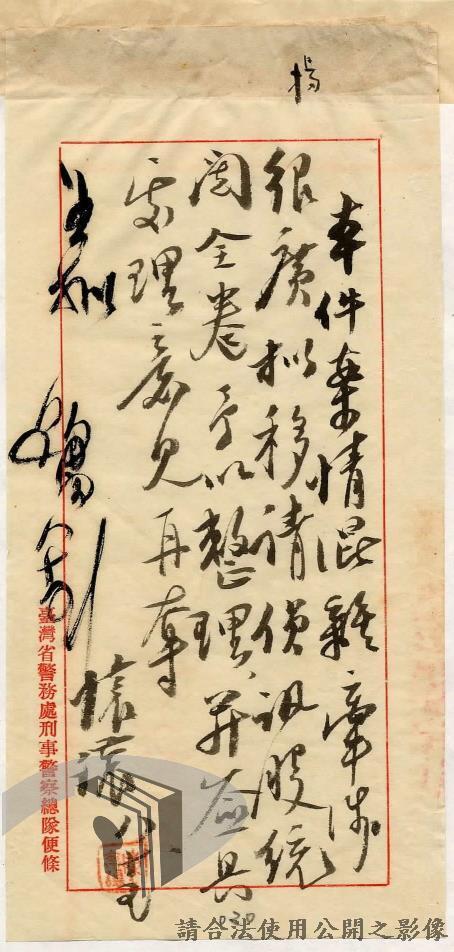 楊
本件案情混雜牽涉
很廣擬移請偵訊股統
閱全卷予以整理、並簽具
處理意見再奪
如擬
臺灣省警務處刑事警察總隊便條
030
請合法使用公開之影像